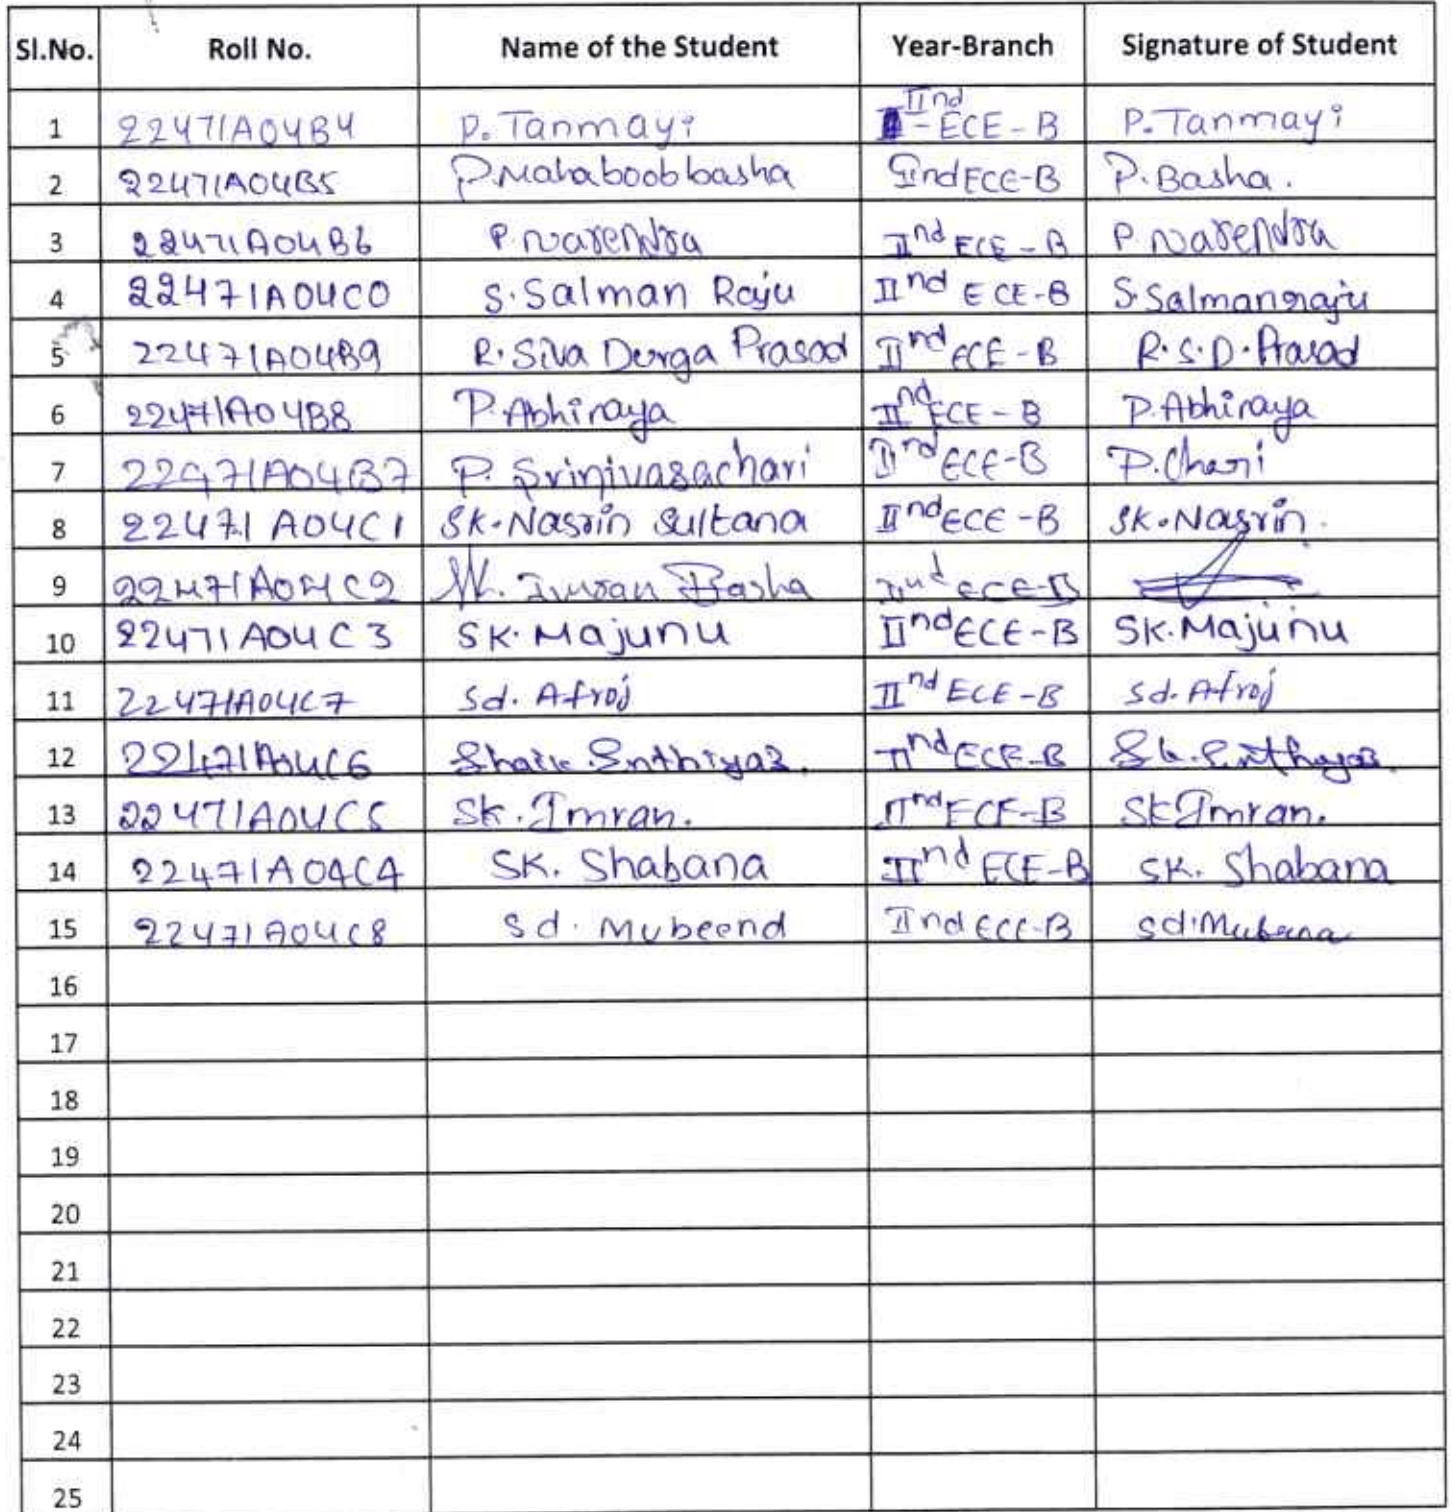 Sl.No. Roll No. Name of the Student Year-Branch Signature of Student
1 22471A04B4 P. Tanmayi IInd - ECE - B P. Tanmayi
2 22471A04B5 P. Mahaboobbasha IInd ECE-B P. Basha.
3 22471A04B6 P. Narendra IInd ECE - B P. Narendra
4 22471A04C0 S. Salman Raju IInd ECE-B S. Salmanraju
5 22471A04B9 R. Siva Durga Prasad IInd ECE - B R. S. D. Prasad
6 22471A04B8 P. Abhiraya IInd ECE - B P. Abhiraya
7 22471A04B7 P. Srinivasachari IInd ECE-B P. Chari
8 22471A04C1 SK. Nasrin Sultana IInd ECE - B SK. Nasrin.
9 22471A04C2 Imran Basha IInd ECE-B
10 22471A04C3 SK. Majunu IInd ECE - B SK. Majunu
11 22471A04C7 Sd. Afroj IInd ECE - B Sd. Afroj
12 22471A04C6 Shaik Enthiyaz. IInd ECE-B Sk. Enthiyaz.
13 22471A04C5 Sk. Imran. IInd ECE-B Sk Imran.
14 22471A04C4 SK. Shabana IInd ECE-B SK. Shabana
15 22471A04C8 Sd. Mubeena IInd ECE-B Sd. Mubeena
16
17
18
19
20
21
22
23
24
25